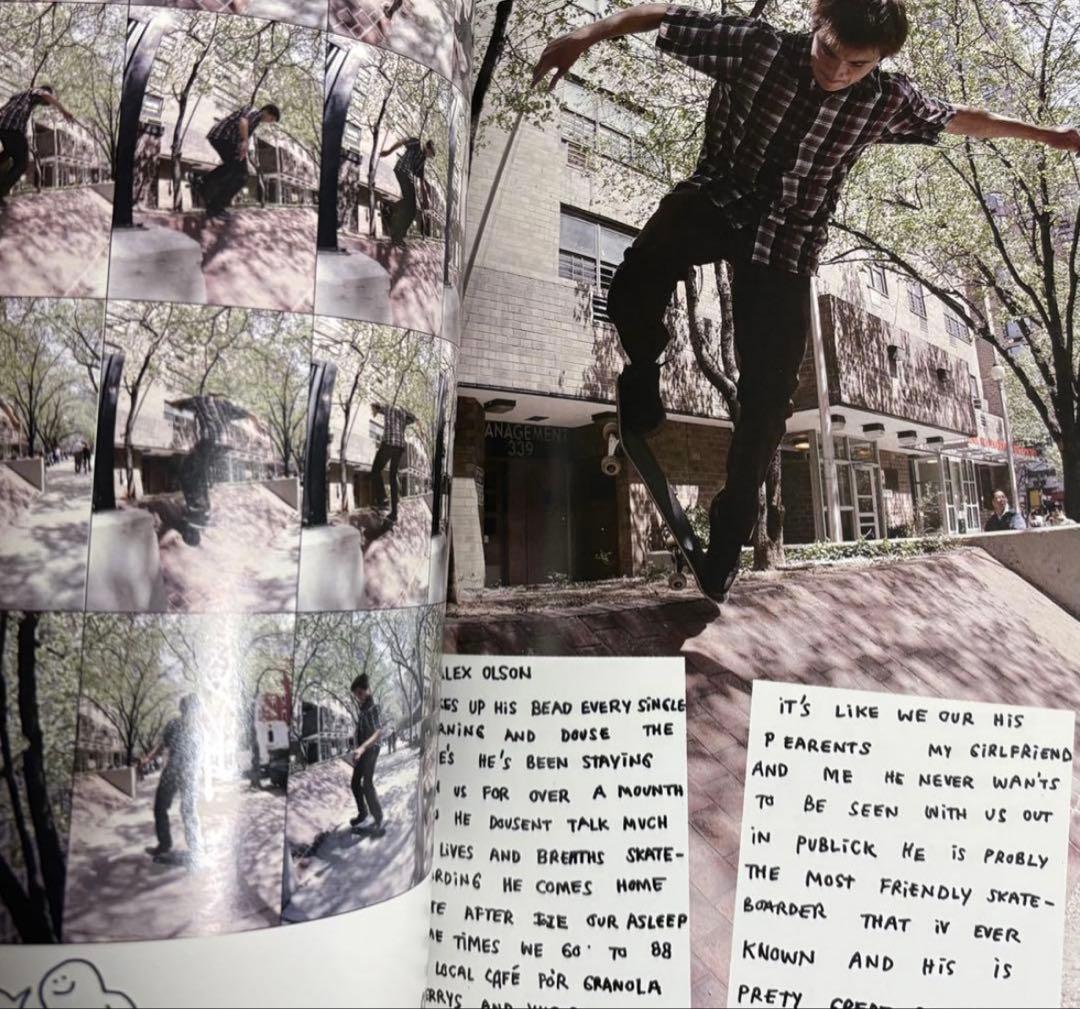 ANAGEMENT
339
LEX OLSON
ES UP HIS BEAD EVERY SINGLE
ANING AND DOUSE THE
E'S HE'S BEEN STAYING
US FOR OVER A MOUNTH
HE DOUSENT TALK MUCH
LIVES AND BREATHS SKATE-
RDING HE COMES HOME
TE AFTER OUR ASLEEP
ME TIMES WE GO TO 88
LOCAL CAFÉ FOR GRANOLA
ERRYS AND
IT'S LIKE WE OUR HIS
PEARENTS MY GIRLFRIEND
AND ME HE NEVER WAN'TS
TO BE SEEN WITH US OUT
IN PUBLICK HE IS PROBLY
THE MOST FRIENDLY SKATE-
BOARDER THAT IV EVER
KNOWN AND HIS IS
PRETY